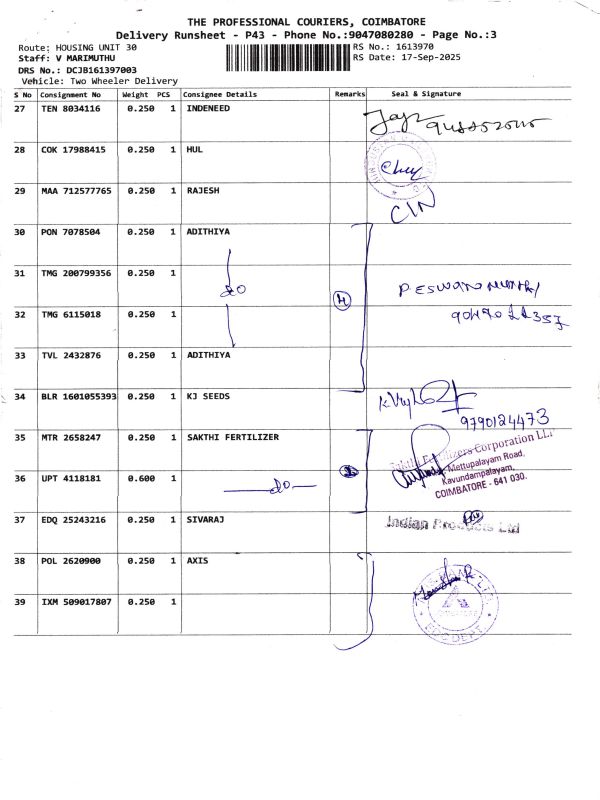 THE PROFESSIONAL COURIERS, COIMBATORE
Delivery Runsheet - P43 - Phone No.:9047080280 - Page No.:3
Route: HOUSING UNIT 30 RS No.: 1613970
Staff: V MARIMUTHU RS Date: 17-Sep-2025
DRS No.: DCJB161397003
Vehicle: Two Wheeler Delivery
S No Consignment No Weight PCS Consignee Details Remarks Seal & Signature
27 TEN 8034116 0.250 1 INDENEED
28 COK 17988415 0.250 1 HUL
29 MAA 712577765 0.250 1 RAJESH
CIN
30 PON 7078504 0.250 1 ADITHIYA
31 TMG 200799356 0.250 1
do
32 TMG 6115018 0.250 1
33 TVL 2432876 0.250 1 ADITHIYA
34 BLR 1601055393 0.250 1 KJ SEEDS
9790124473
35 MTR 2658247 0.250 1 SAKTHI FERTILIZER
Sakthi Fertilizers Corporation LLP
Mettupalayam Road,
Kavundampalayam,
COIMBATORE - 641 030.
36 UPT 4118181 0.600 1 do
37 EDQ 25243216 0.250 1 SIVARAJ Indian Products Ltd
38 POL 2620900 0.250 1 AXIS
39 IXM 509017807 0.250 1